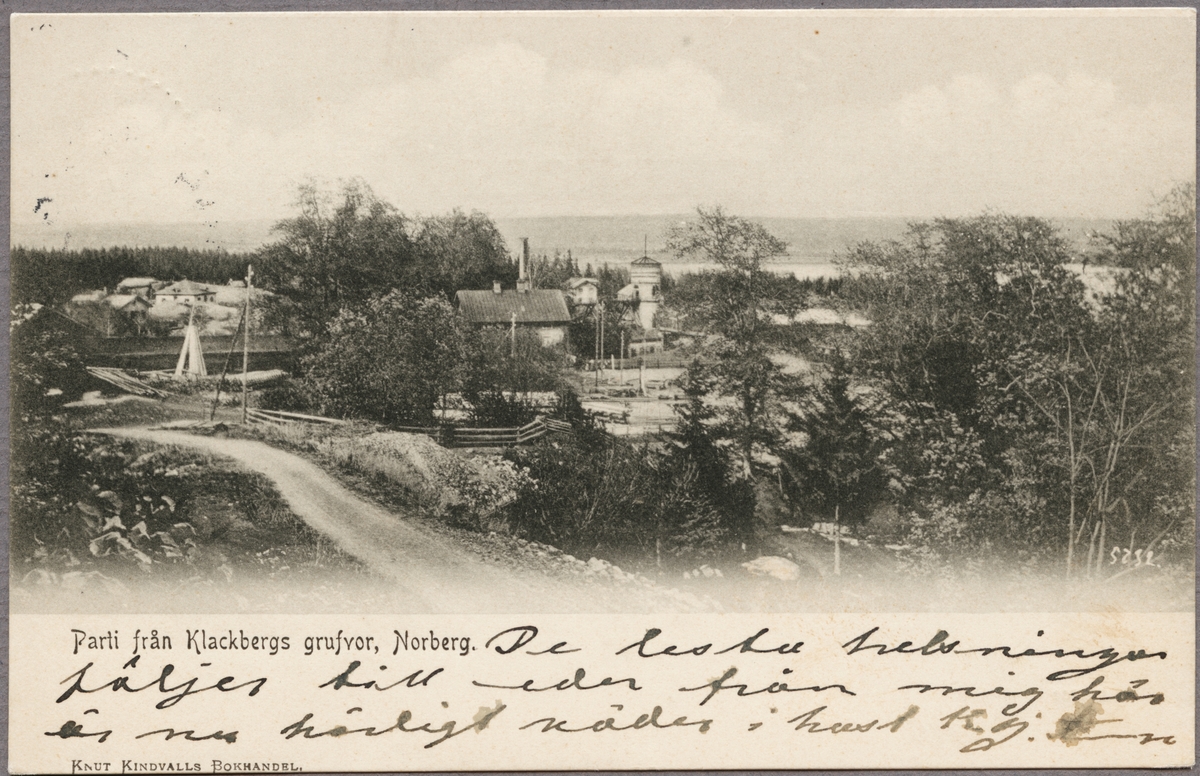 5252
Parti från Klackbergs grufvor, Norberg. De besta helsningar
följer till eder från mig här
är nu härligt väder i hast K. J.
KNUT KINDVALLS BOKHANDEL.